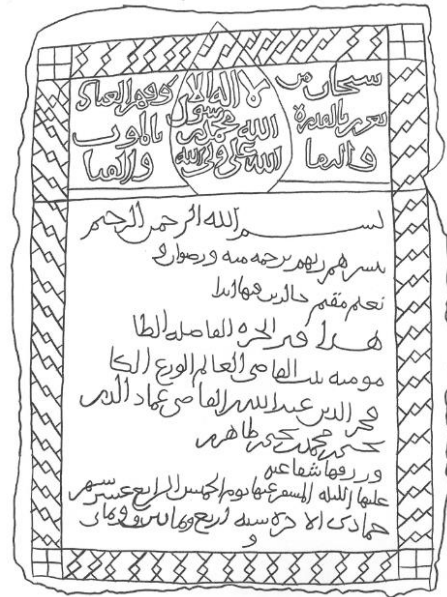 سبحان من
تعزز بالقدرة
والبقا
لا اله الا
الله محمد رسول
الله علي ولي الله
وقهر العباد
بالموت
والفنا
بسم الله الرحمن الرحيم
يبشرهم ربهم برحمه منه ورضوان و
نعيم مقيم خالدين فيها ابدا
هذا قبر الحره الفاضله الطا
مومنه بنت القاضي العالم الورع الكا
فخر الدين عبدالله بن القاضي عماد الدين
يحيى محمد يحيى طاهر
ورزقها شفاعته
عليها الليله المسفر عنها يوم الخميس الرابع عشر شهر
جمادى الاخره سنه اربع وثمانين وثماني
و